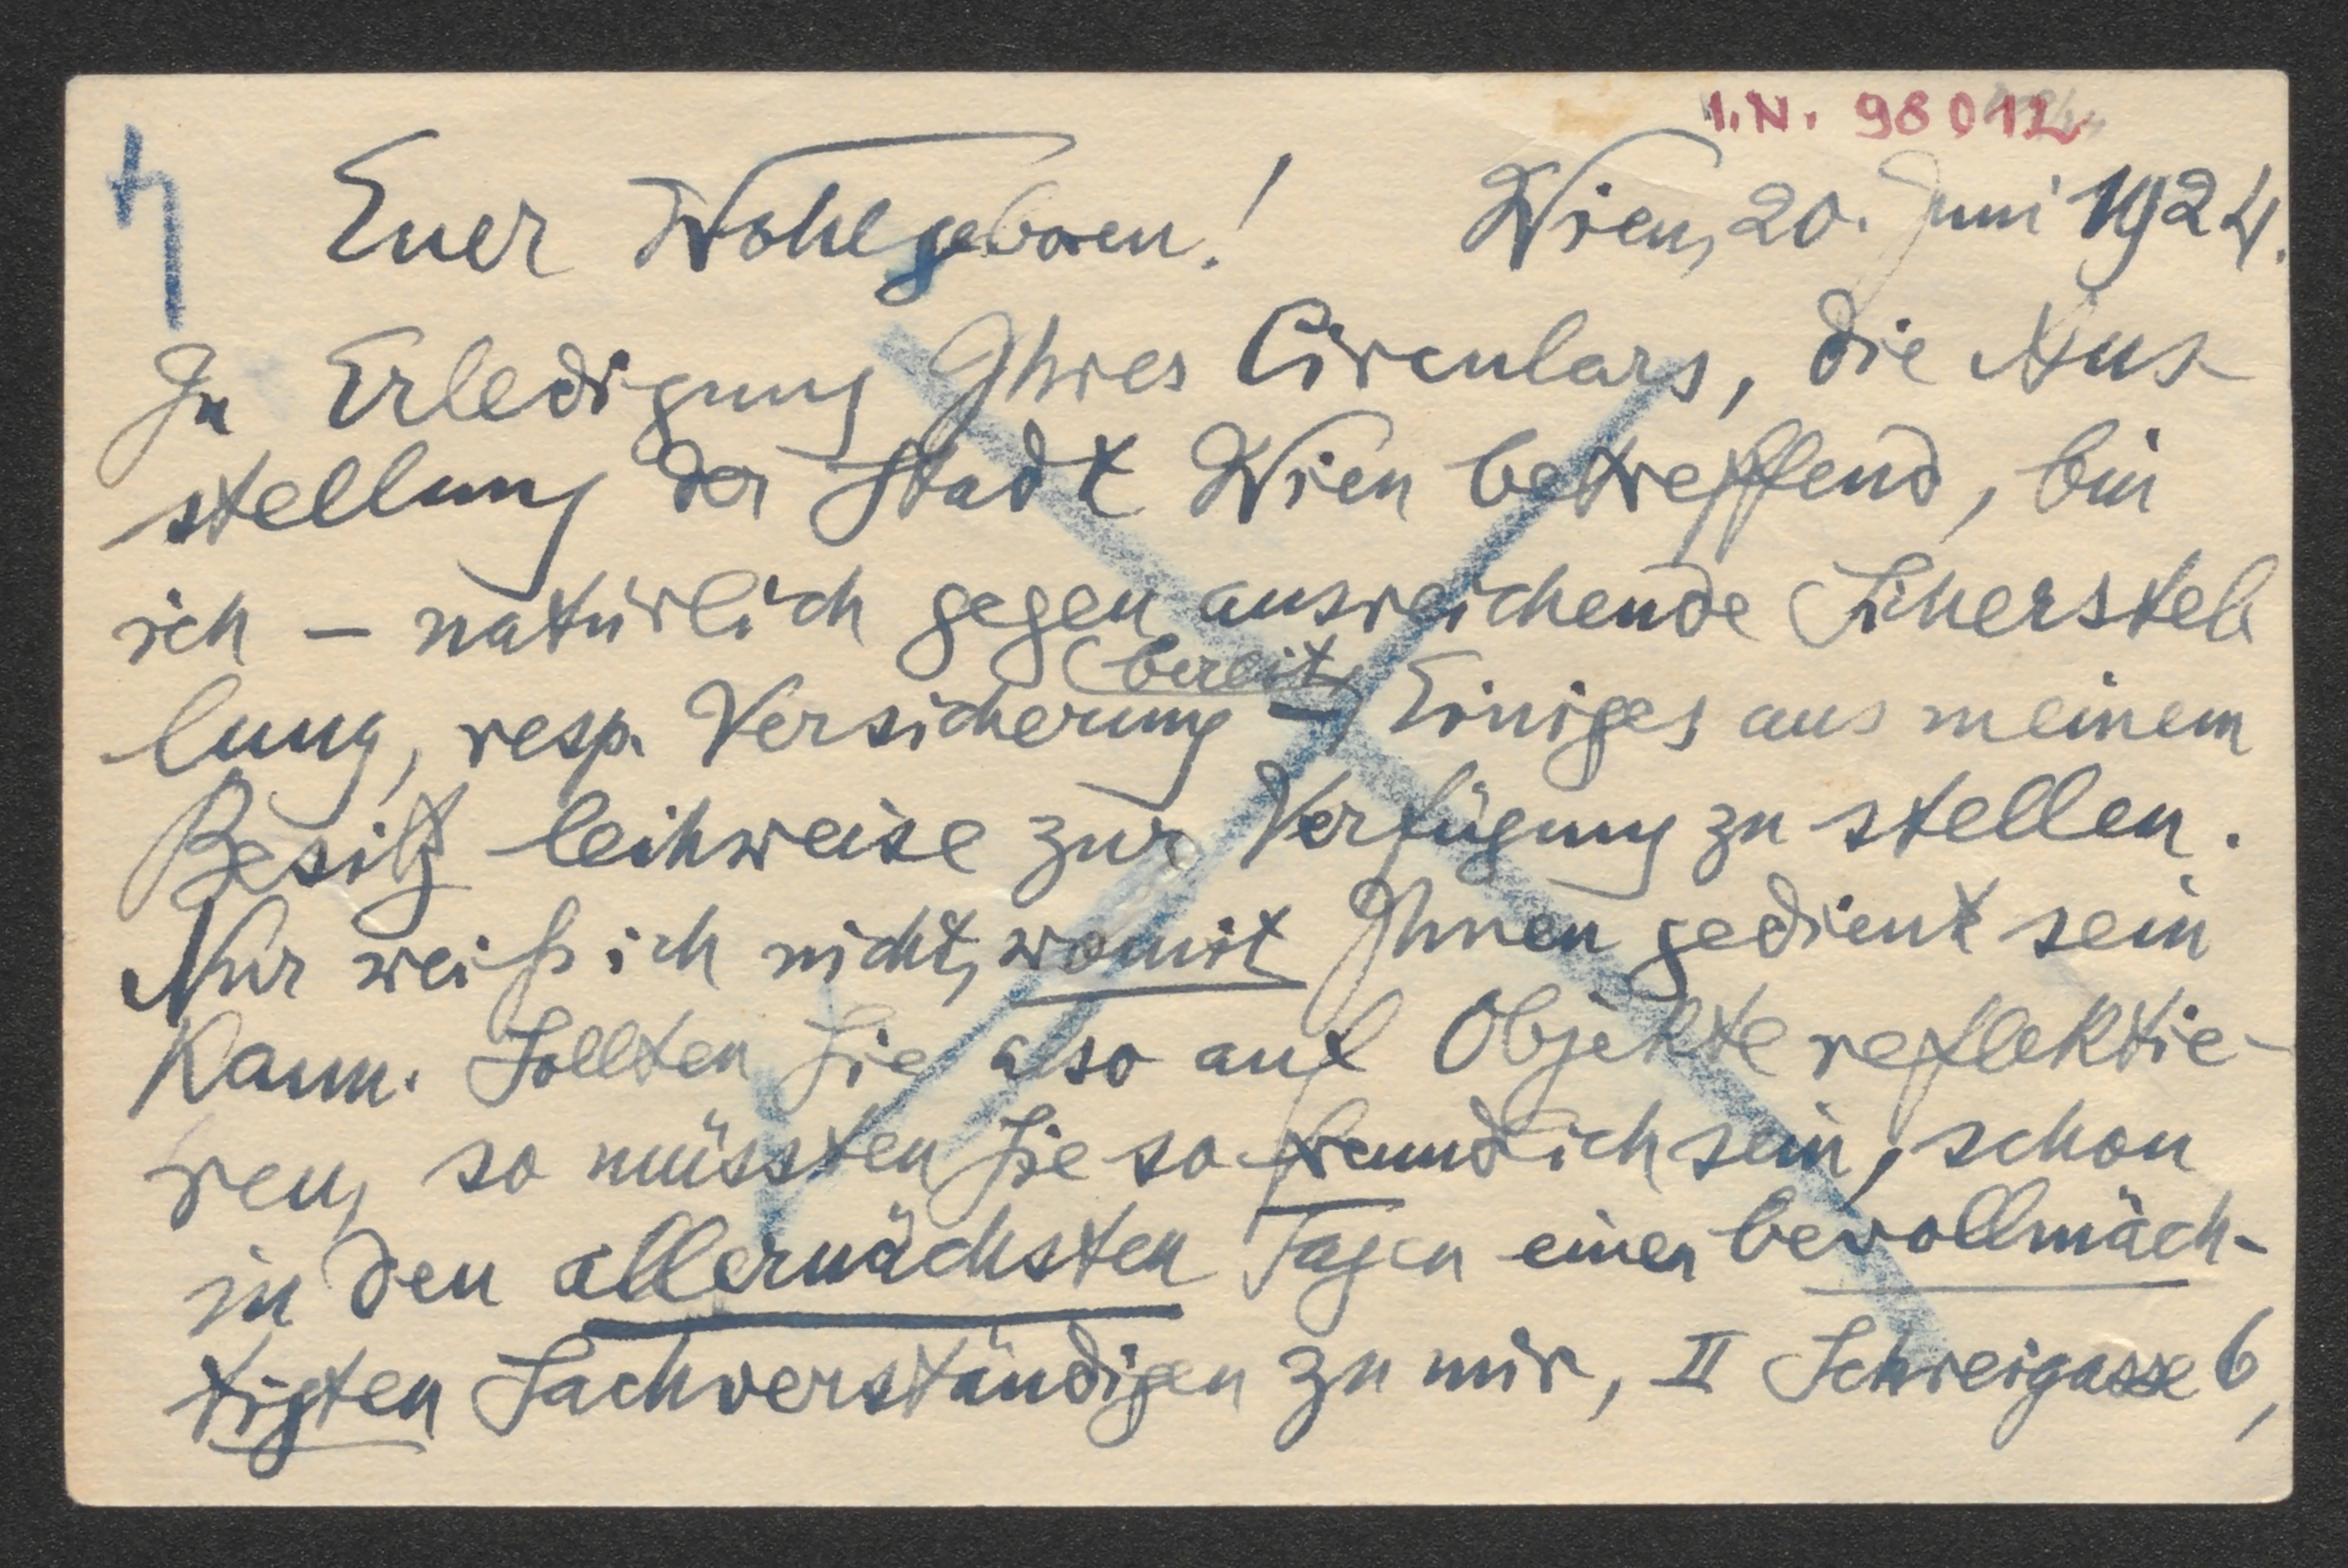 I.N. 98012
4
Euer Wohlgeboren! Wien, 20. Juni 1924.
In Erledigung Ihres Circulars, die Aus-
stellung der Stadt Wien betreffend, bin
ich – natürlich gegen ausreichende Sicherstel
bereit
lung, resp. Versicherung – Einiges aus meinem
Besitz leihweise zur Verfügung zu stellen.
Nur weiß ich nicht, womit Ihnen gedient sein
kann. Sollten Sie also auf Objekte reflektie-
ren, so müssten Sie so freundlich sein, schon
in den allernächsten Tagen einen bevollmäch-
tigten Sachverständigen zu mir, II Schreigasse 6,